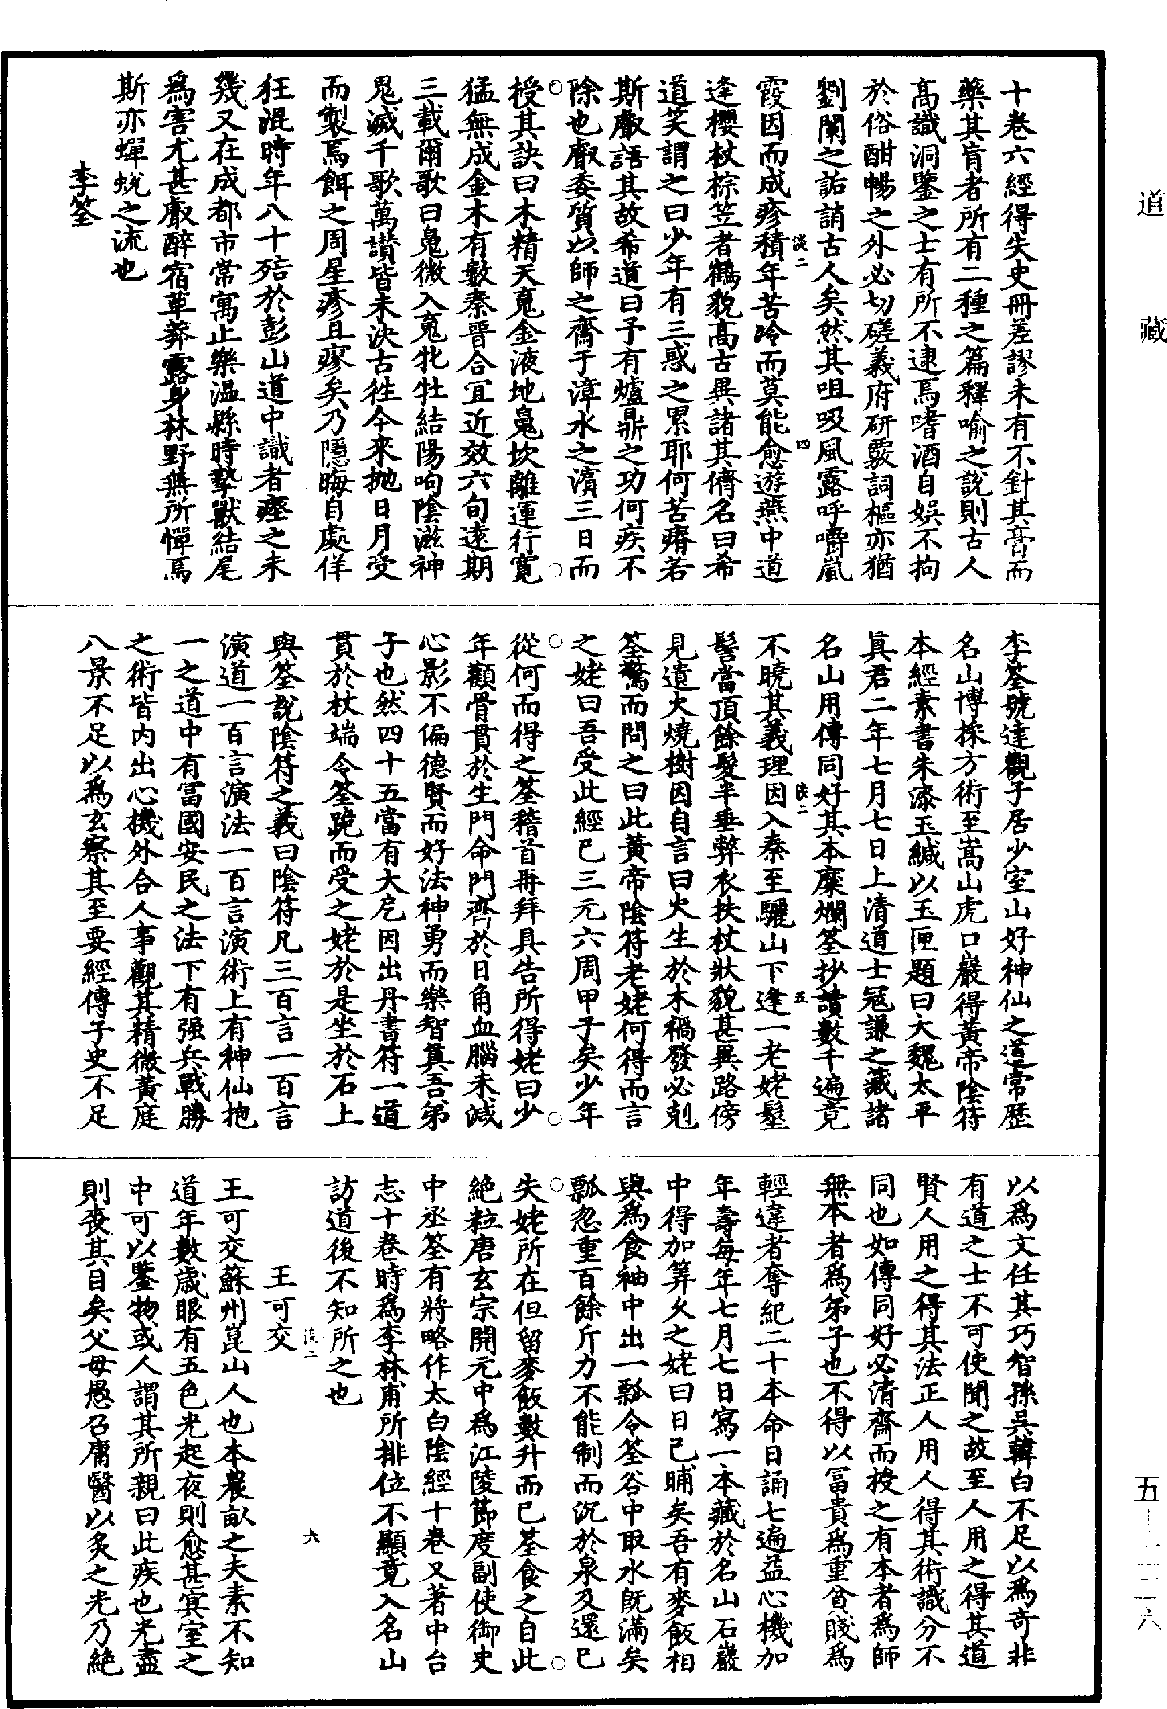 道藏
十卷六經得失史冊差謬未有不針其膏而
藥其肓者所有二種之篇釋喻之說則古人
高識洞鑒之士有所不逮焉嗜酒自娛不拘
於俗酣暢之外必切磋義府研覈詞樞亦猶
劉闌之詬誚古人矣然其咀吸風露呼嚼嵐
霞因而成疹積年苦冷而莫能愈遊燕中道
逢櫻杖椶笠者鶴貌高古異諸其儕名曰希
道笑謂之曰少年有三惑之累耶何苦瘠若
斯㕡語其故希道曰予有爐鼎之功何疾不
除也㕡委質以師之齋于漳水之濱三日而
授其訣曰木精天䰟金液地䰟坎離運行寬
猛無成金木有數秦晉合宜近效六旬遠期
三載爾歌曰䰟微入䰟牝牡結陽呴陰滋神
鬼滅千歌萬讃皆未決古徃今來拋日月受
而製焉餌之周星疹且瘳矣乃隱晦自處佯
狂混時年八十殁於彭山道中識者瘞之未
幾又在成都市常寓止樂温縣時摯獸結尾
爲害尤甚㕡醉宿草莽露身林野無所憚焉
斯亦蟬蛻之流也
李筌
李筌號達觀子居少室山好神仙之道常歷
名山博採方術至嵩山虎口巖得黃帝陰符
本經素書朱漆玉緘以玉匣題曰大魏太平
真君二年七月七日上清道士冦謙之藏諸
名山用傳同好其本糜爛筌抄讀數千遍竟
不曉其義理因入秦至驪山下逢一老姥髽
髻當頂餘髮半垂弊衣扶杖狀貌甚異路傍
見遺火燒樹因自言曰火生於木禍發必剋
筌驚而問之曰此黃帝陰符老姥何得而言
之姥曰吾受此經已三元六周甲子矣少年
從何而得之筌稽首再拜具告所得姥曰少
年顴骨貫於生門命門齊於日角血腦未減
心影不偏德賢而好法神勇而樂智真吾弟
子也然四十五當有大厄因出丹書符一道
貫於杖端令筌跪而受之姥於是坐於石上
與筌說陰符之義曰陰符凡三百言一百言
演道一百言演法一百言演術上有神仙抱
一之道中有富國安民之法下有强兵戰勝
之術皆內出心機外合人事觀其精微黃庭
八景不足以爲玄察其至要經傳子史不足
以爲文任其巧智孫吳韓白不足以爲奇非
有道之士不可使聞之故至人用之得其道
賢人用之得其法正人用人得其術識分不
同也如傳同好必清齋而授之有本者爲師
無本者爲弟子也不得以冨貴爲重貧賤爲
輕違者奪紀二十本命日誦七遍益心機加
年壽每年七月七日寫一本藏於名山石巖
中得加筭久之姥曰日已晡矣吾有麥飯相
與爲食袖中出一瓢令筌谷中取水旣滿矣
瓢忽重百餘斤力不能制而沉於泉及還已
失姥所在但留麥飯數升而已筌食之自此
絶粒唐玄宗開元中爲江陵節度副使御史
中丞筌有將略作太白陰經十卷又著中台
志十卷時爲李林甫所排位不顯竟入名山
訪道後不知所之也
王可交
王可交蘇州崑山人也本農畝之夫素不知
道年數歲眼有五色光起夜則愈甚冥室之
中可以鑒物或人謂其所親曰此疾也光盡
則喪其目矣父母愚召庸醫以灸之光乃絶
淡二
四
淡二
五
淡二
六
五
六